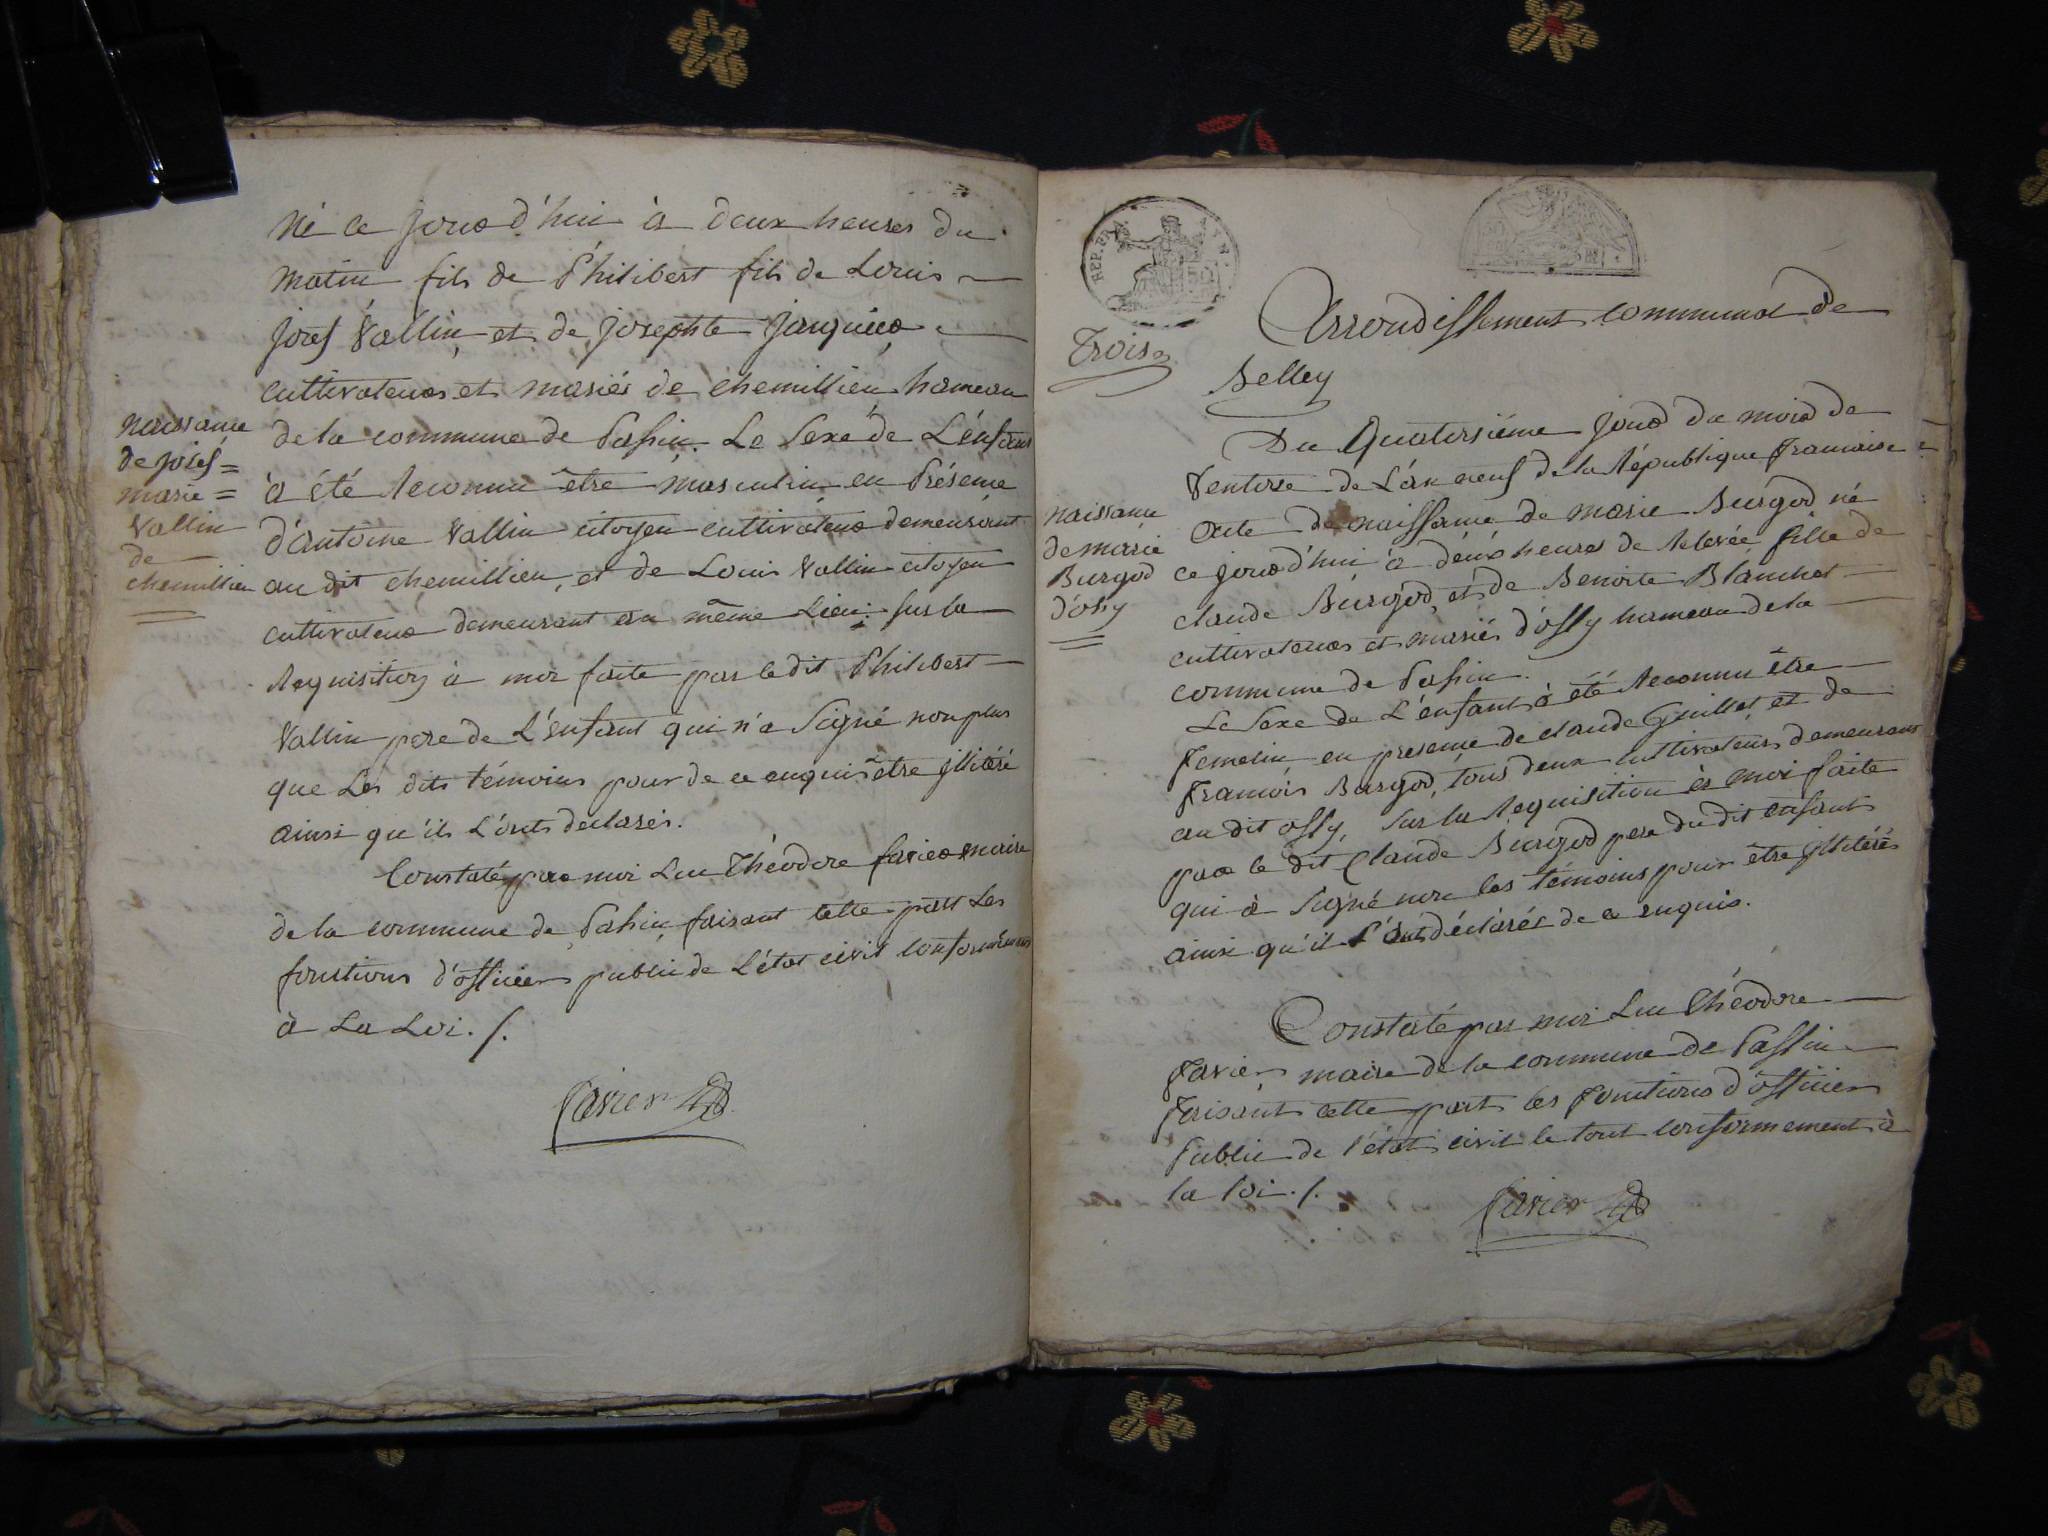 né ce jour d'hui à deux heures du
matin fils de Philibert fils de Louis
josef Vallin et de josephte janguier
cultivateurs et mariés de chemillieu hameau
de la commune de Passin. Le Sexe de L'énfant
à été Reconnu être masculin en Présence
d'antoine Vallin citoyen cultivateur demeurant
au dit chemillieu, et de Louis Vallin citoyen
cultivateur demeurant au même Lieu; sur la
Requisition à moi faite par le dit Philibert
Vallin pere de L'énfant qui n'a Signé non plus
que Les dits témoins pour de ce enquis être jllitéré
ainsi qu'ils L'ont declarés.
Constaté par moi Luc Théodore favier maire
de la commune de Passin faisant cette part Les
fonctions d'officier public de L'état civil conformément
à La Loi ./.
favier
naissance
de josef =
marie =
Vallin
de
chemillieu
REP. FRA.
Trois
Arrondissement communal de
Belley
Du Quatorsiéme jour du mois de
Ventose de L'an neuf de la République francaise
Acte de naissance de marie Burgod né
ce jour d'hui à deux heures de Relevée fille de
claude Burgod, et de Benoite Blanchet
cultivateurs et mariés d'ossy hameau de la
commune de Passin.
Le Sexe de L'énfant à été Reconnu être
femelin en presence de claude Guillot et de
francois Burgod, tous deux cultivateurs demeurant
au dit ossy, sur la Requisition à moi faite
par le dit Claude Burgod pere du dit enfant
qui à Signé non les témoins pour être jllitérés
ainsi qu'il L'ont déclarés de ce enquis.
Constaté par moi Luc Théodore
favier maire de la commune de Passin
faisant cette part les fonctions d'officier
Public de l'état civil le tout conformement à
la loi ./.
favier
naissance
de marie
Burgod
d'ossy